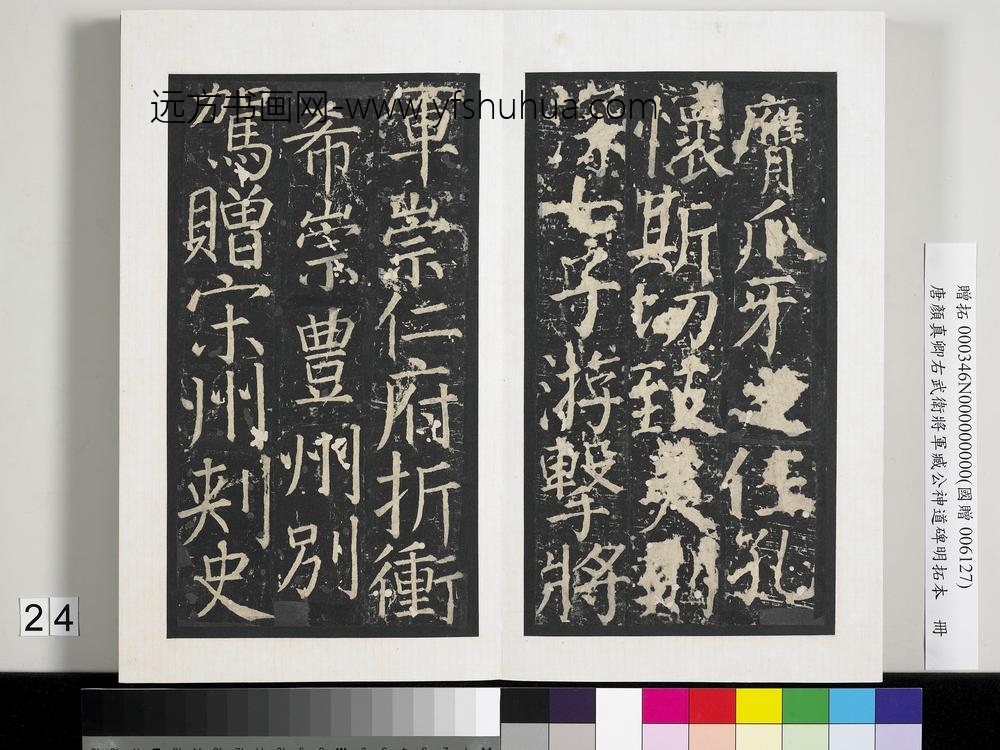 膺爪牙之任孔
懷斯切致美則
深七子游擊將
軍崇仁府折衝
希崇豊州別
駕贈宋州刺史
远方书画网-www.yfshuhua.com
贈拓 000346N000000000(國贈 006127)
唐顏真卿右武衛將軍臧公神道碑明拓本 冊
24